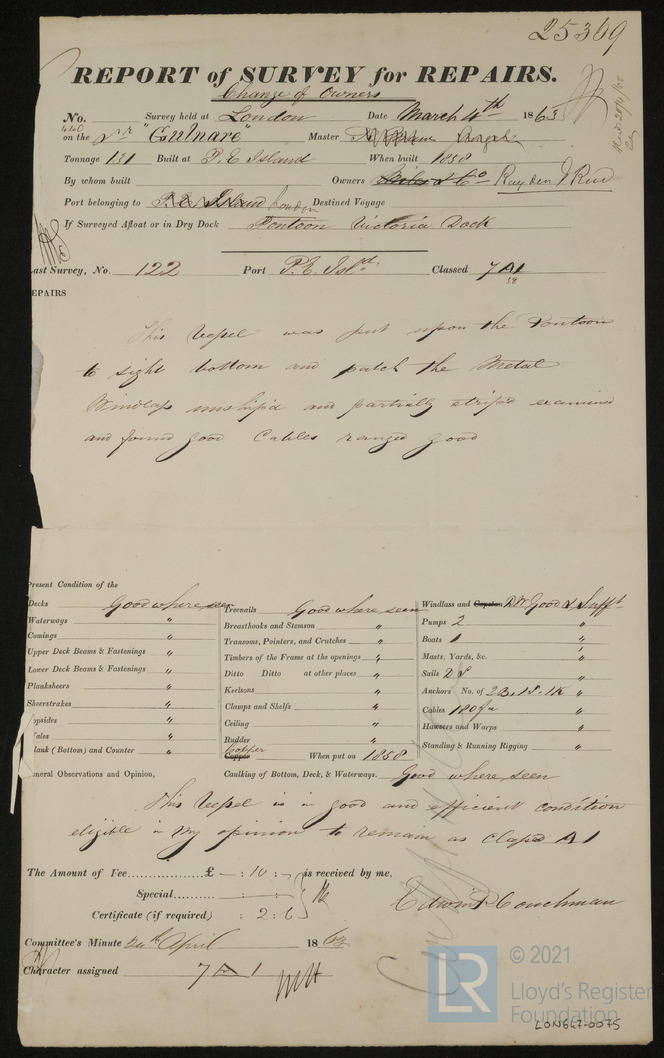 25369
REPORT of SURVEY for REPAIRS.
Change of Owners
No. Survey held at London Date March 4th 1863
440
on the "Gulnare" Master
Tonnage 131 Built at P. E Island When built 1858
By whom built Owners
Port belonging to P. E. Island London Destined Voyage
If Surveyed Afloat or in Dry Dock Pontoon Victoria Dock
Last Survey, No. 122 Port P. E. Isld. Classed 7 A1
58
EPAIRS
This Vessel was put upon the Pontoon
to sight bottom and patch the Metal
Windlass unship'd and partially strip'd examined
and found good Cables ranged good
Present Condition of the
Decks Good where seen Treenails Good where seen Windlass and Capstan Good & Sufft
Waterways " Breasthooks and Stemson " Pumps 2 "
Comings " Transoms, Pointers, and Crutches " Boats 1 "
Upper Deck Beams & Fastenings " Timbers of the Frame at the openings " Masts, Yards, &c. "
Lower Deck Beams & Fastenings " Ditto Ditto at other places " Sails "
Planksheers " Keelsons " Anchors No. of 2B. 1S. 1K "
Sheerstrakes " Clamps and Shelfs " Cables "
opsides " Ceiling " Hawsers and Warps "
ales " Rudder " Standing & Running Rigging "
lank (Bottom) and Counter " Copper When put on 1858
eneral Observations and Opinion, Caulking of Bottom, Deck, & Waterways. Good where seen
This Vessel is in good and efficient condition
eligible in my opinion to remain as classed A 1
The Amount of Fee £ — : 10 : – is received by me,
Special
Certificate (if required) : 2 : 6
Edwin Couchman
Committee's Minute April 1863
Character assigned 7 A 1
© 2021
LR
Lloyd's Register
Foundation
LON647-0075